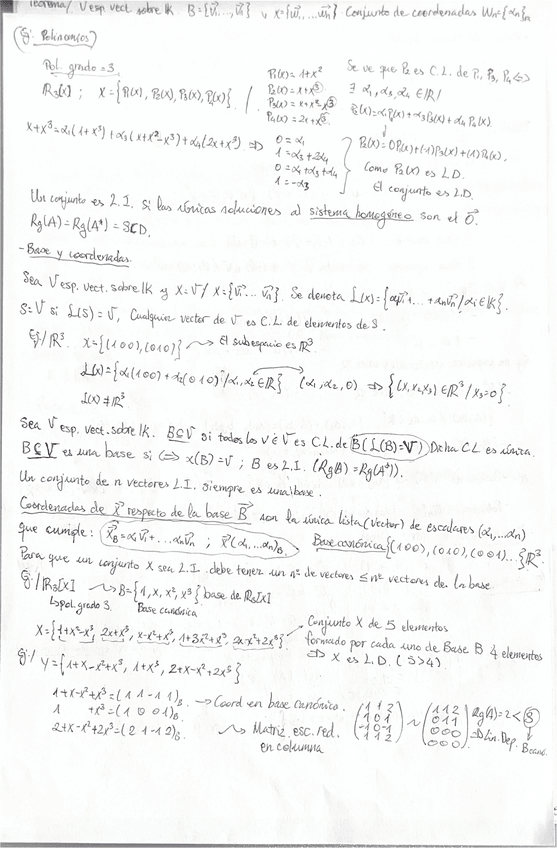 Teorema/ V esp. vect sobre IK B={v⃗1,...,v⃗n} y X={w⃗1,...w⃗n} Conjunto de coordenadas
Ej: Polinomios
Pol. grado=3
IR3[x] ; X={P1(x), P2(x), P3(x), P4(x)} /
P1(x)=1+x²
P2(x)=x+x³
P3(x)=x+x²-x³
P4(x)=2x+x³
Se ve que P2 es C.L. de P1, P3, P4 <=>
∃ α1, α3, α4 ∈ IR/
P2(x)=α1P1(x)+α3P3(x)+α4P4(x)
x+x³=α1(1+x³)+α3(x+x²-x³)+α4(2x+x³) =>
0=α1
1=α3+2α4
0=α1+α3+α4
1=-α3
P2(x)=0P1(x)+(-1)P3(x)+(1)P4(x).
Como P2(x) es L.D.
El conjunto es L.D.
Un conjunto es L.I. si las únicas soluciones al sistema homogéneo son el 0⃗.
Rg(A)=Rg(A*)=SCD.
-Base y coordenadas.
Sea V esp. vect. sobre IK y X=V/ X={v⃗1...v⃗n}. Se denota L(x)={α1v⃗1+...+αnv⃗n/αi∈IK}.
S=V si L(S)=V, Cualquier vector de V es C.L de elementos de S.
Ej/ IR³. X={(100),(010)} El subespacio es IR³
L(x)={α1(100)+α2(010)/α1,α2∈IR} (α1,α2,0) => {(x1,x2,x3)∈IR³/x3=0}.
L(x)≠IR³
Sea V esp. vect. sobre IK. B⊆V si todos los v⃗∈V es CL. de B(L(B)=V) Dicha CL es única.
B⊆V es una base si <=> x(B)=V ; B es L.I. (Rg(A)=Rg(A*)).
Un conjunto de n vectores L.I. siempre es una base.
Coordenadas de X⃗ respecto de la base B⃗ son la única lista (vector) de escalares (α1,...αn)
que cumple: X⃗B=α1v⃗1+...αnv⃗n ; X⃗(α1,...αn)B. Base canónica {(100),(010),(001)...}IR³.
Para que un conjunto X sea L.I. debe tener un nº de vectores ≤ nº vectores de la base
Ej:/ IR3[x] B={1,x,x²,x³} base de IR3[x]
pol. grado 3. Base canónica
X={1+x²-x³, 2x+x³, x-x²+x³, 1+3x²+x³, 2x-x²+2x³}
Conjunto X de 5 elementos
formado por cada uno de Base B 4 elementos
=> X es L.D. (5>4).
Ej:/ Y={1+x-x²+x³, 1+x³, 2+x-x²+2x³}
1+x-x²+x³=(1 1 -1 1)B
1 +x³=(1 0 0 1)B
2+x-x²+2x³=(2 1 -1 2)B
→ Coord en base canónica.
Matriz. esc. red. en columna
(1 1 2
1 0 1
-1 0 -1
1 1 2)
~
(1 1 2
0 1 1
0 0 0
0 0 0)
Rg(A)=2<3
=> Lin. Dep.